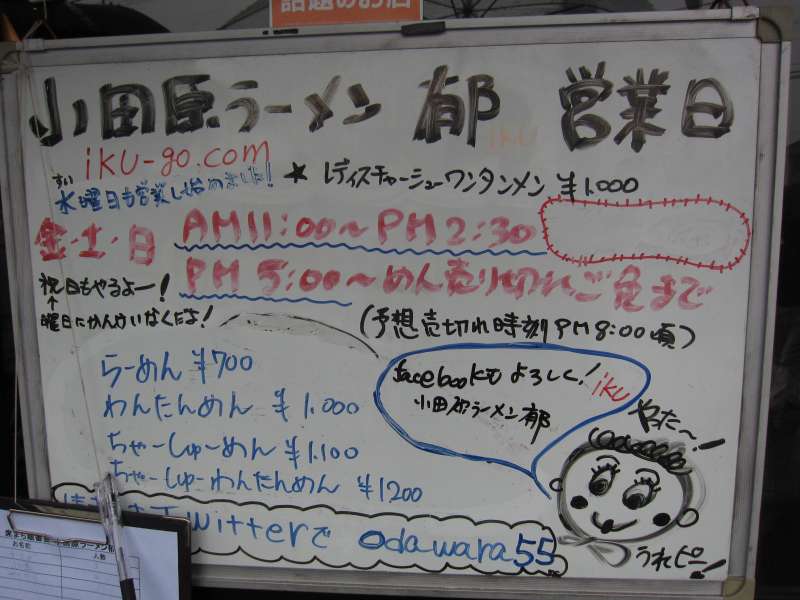 話題のお店
小田原ラーメン 郁 営業日
iku
iku-go.com
すい
水曜日も営業し始めました!
★ レディスチャーシューワンタンメン ¥1.000
金・土・日 AM11:00～PM2:30
PM5:00～めん売り切れご免まで
祝日もやるよー!
↑
曜日にかんけいなくだよ!
(予想売切れ時刻PM8:00頃)
らーめん ¥700
わんたんめん ¥1.000
ちゃーしゅーめん ¥1.100
ちゃーしゅーわんたんめん ¥1200
facebookもよろしく! iku
小田原ラーメン郁
やった～!
うれピー!
Twitterで odawara55
お名前 人数